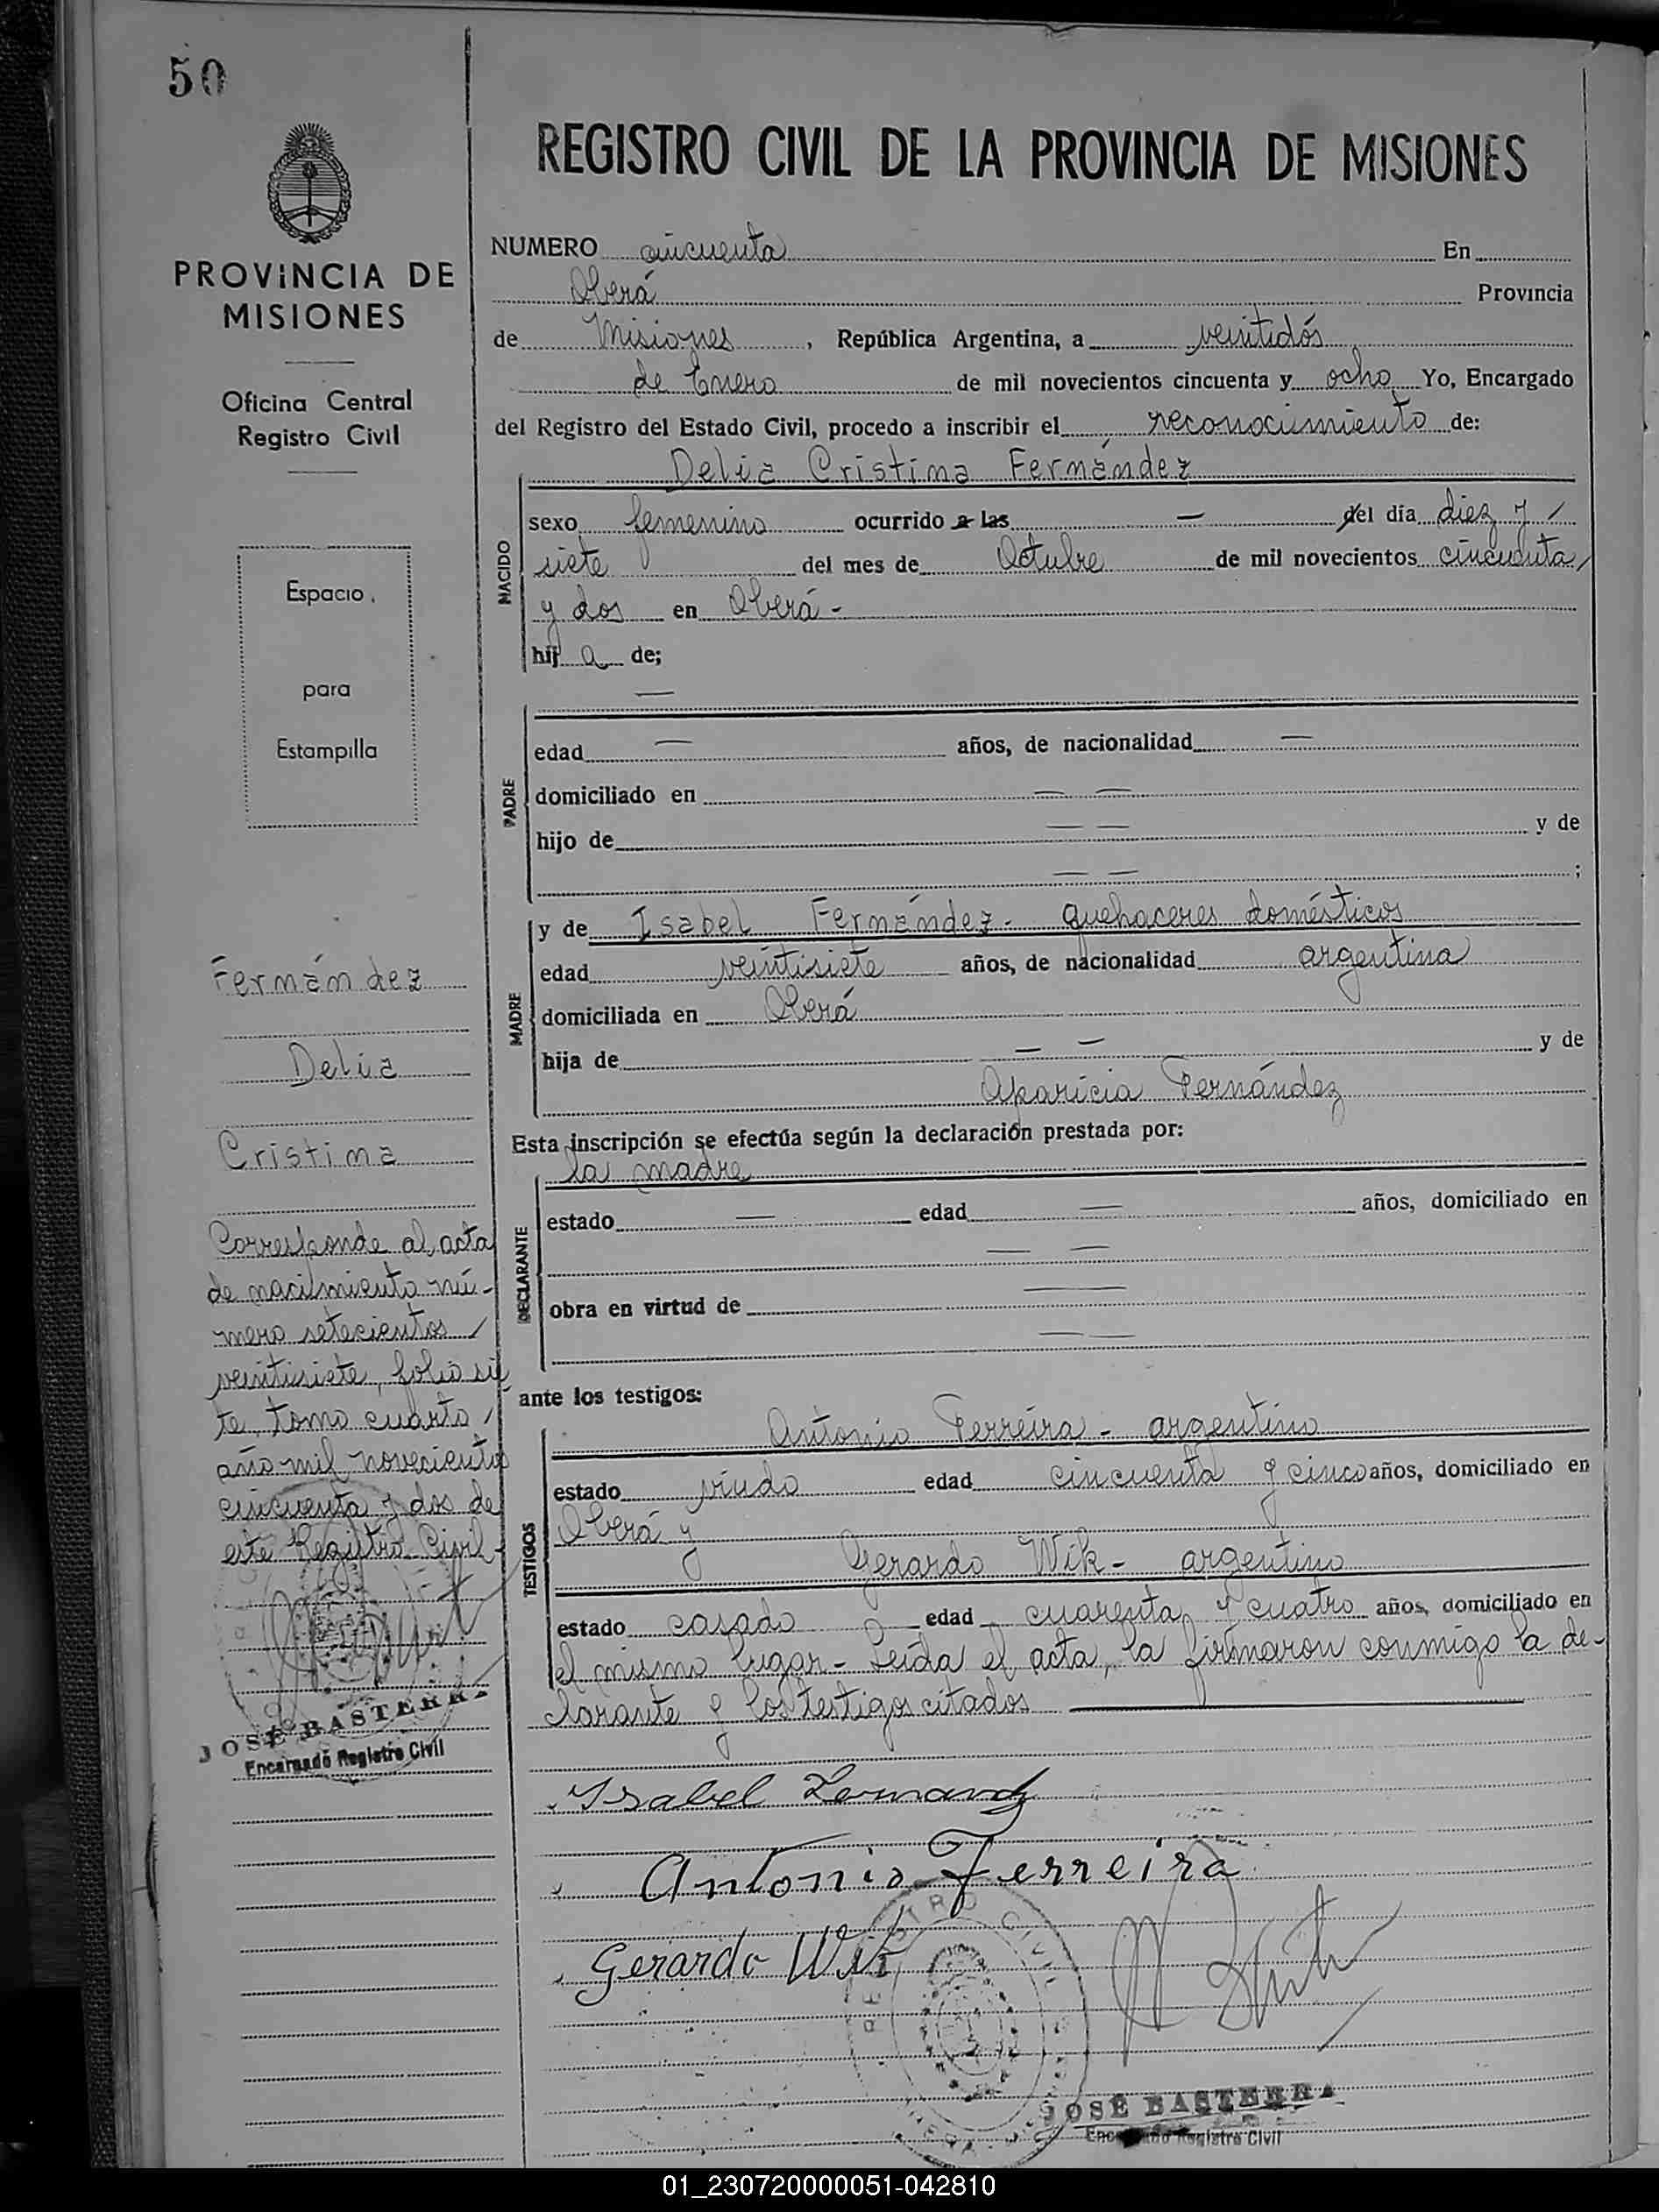 50
PROVINCIA DE
MISIONES
Oficina Central
Registro Civil
Espacio
para
Estampilla
Fernández
Delia
Cristina
Corresponde al acta
de nacimiento nú-
mero setecientos
veintisiete, folio sie
te, tomo cuarto,
año mil novecientos
cincuenta y dos de
este Registro Civil
JOSÉ BASTERRA
Encargado Registro Civil
REGISTRO CIVIL DE LA PROVINCIA DE MISIONES
NUMERO cincuenta En
Oberá Provincia
de Misiones, República Argentina, a veintidós
de Enero de mil novecientos cincuenta y ocho Yo, Encargado
del Registro del Estado Civil, procedo a inscribir el reconocimiento de:
Delia Cristina Fernández
NACIDO
sexo femenino ocurrido a las — del día diez y
siete del mes de Octubre de mil novecientos cincuenta
y dos en Oberá -
hij a de;
PADRE
—
edad — años, de nacionalidad —
domiciliado en — —
hijo de — — y de
— — ;
MADRE
y de Isabel Fernández - quehaceres domésticos
edad veintisiete años, de nacionalidad argentina
domiciliada en Oberá
hija de — — y de
Aparicia Fernández
Esta inscripción se efectúa según la declaración prestada por:
la madre
DECLARANTE
estado — edad — años, domiciliado en
— —
obra en virtud de —
— —
ante los testigos:
TESTIGOS
Antonio Ferreira - argentino
estado viudo edad cincuenta y cinco años, domiciliado en
Oberá y
Gerardo Wik - argentino
estado casado edad cuarenta y cuatro años, domiciliado en
el mismo lugar - Leída el acta, la firmaron conmigo la de-
clarante y los testigos citados
Isabel Fernandz
Antonio Ferreira
Gerardo Wik
JOSÉ BASTERRA
Encargado Registro Civil
01_230720000051-042810